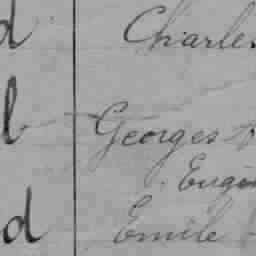 d Charles
b Georges
Eugè
d Emile